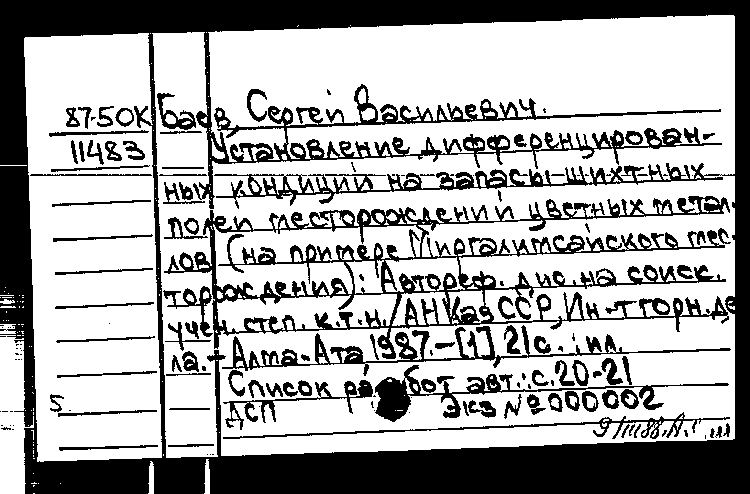 87-50К Баев, Сергей Васильевич.
11483 Установление дифференцирован-
ных кондиций на запасы шихтных
полей месторождений цветных метал-
лов (на примере Миргалимсайского мес-
торождения): Автореф. дис. на соиск.
учен. степ. к.т.н. / АН КазССР, Ин-т горн. де
ла. - Алма-Ата, 1987. - [1], 21 с. : ил.
Список работ авт.: с. 20-21
5 ДСП Экз № 000002
9/III 88.